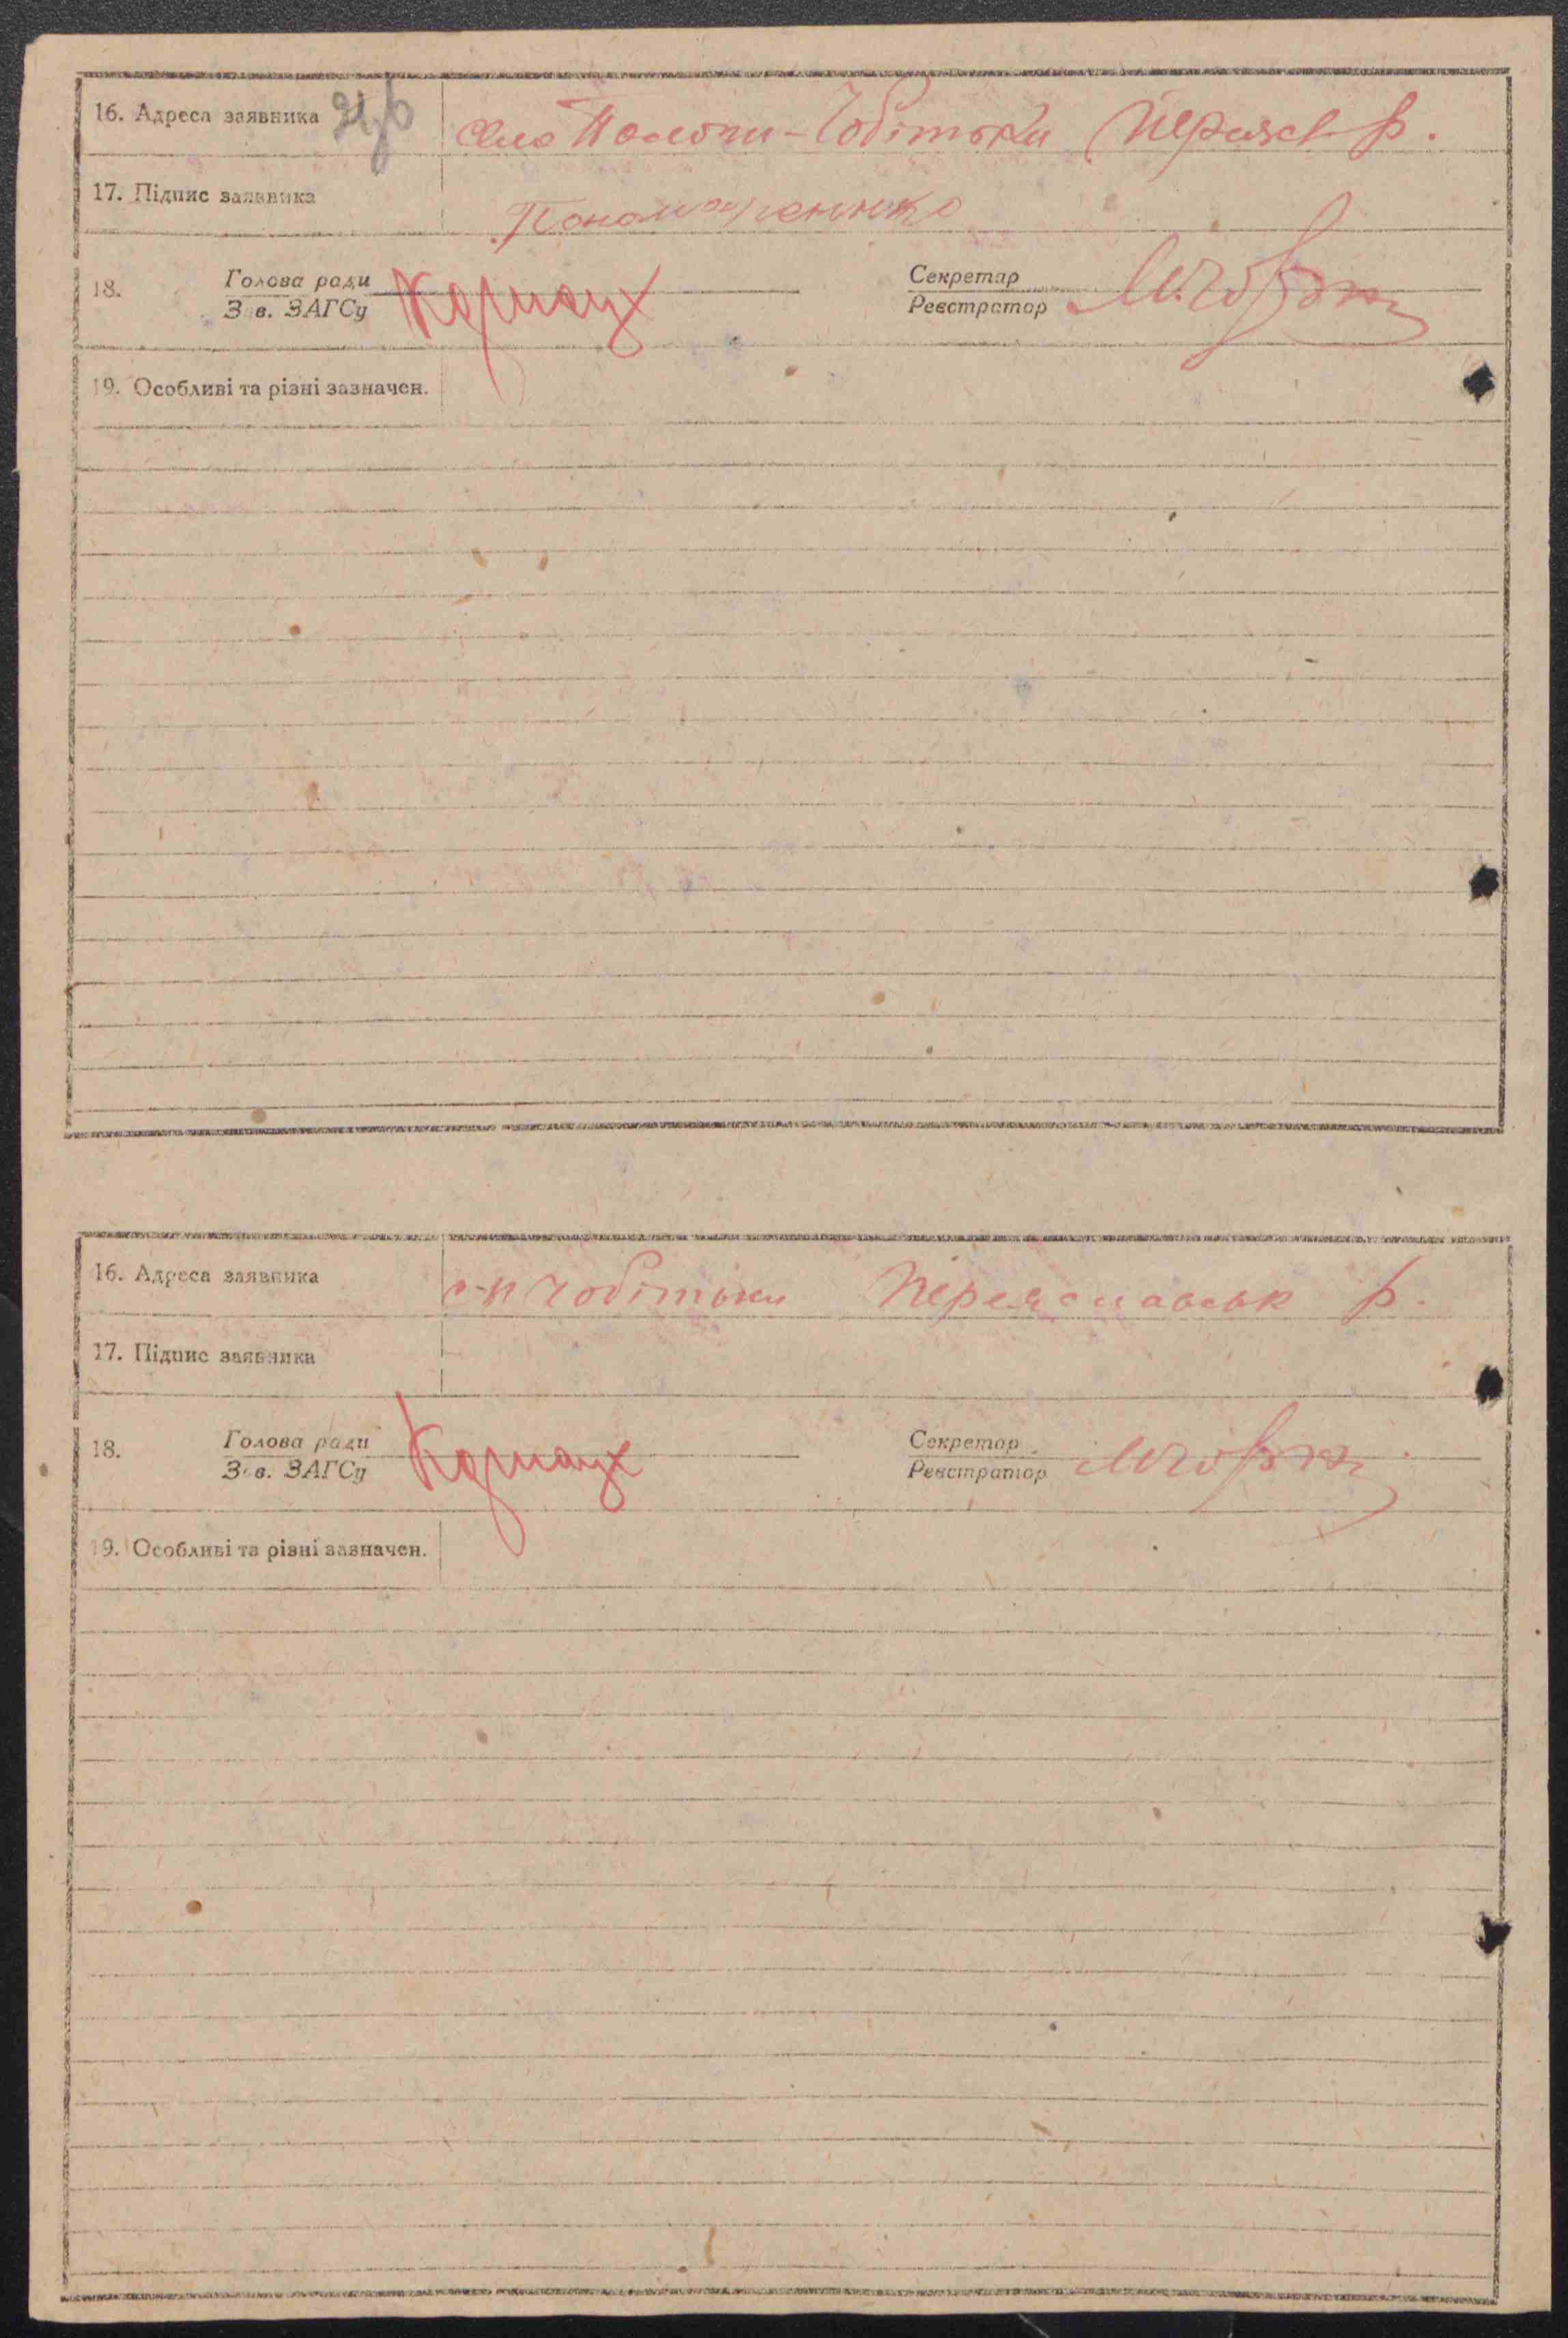 16. Адреса заявника село Полопи-Чобітьки Переясл р.
17. Підпис заявника Пономаренко
18. Голова ради Секретар
Зав. ЗАГСу Реєстратор
19. Особливі та різні зазначен.
16. Адреса заявника с-п Чобітьки Переяславськ р.
17. Підпис заявника
18. Голова ради Секретар
Зав. ЗАГСу Реєстратор
19. Особливі та різні зазначен.